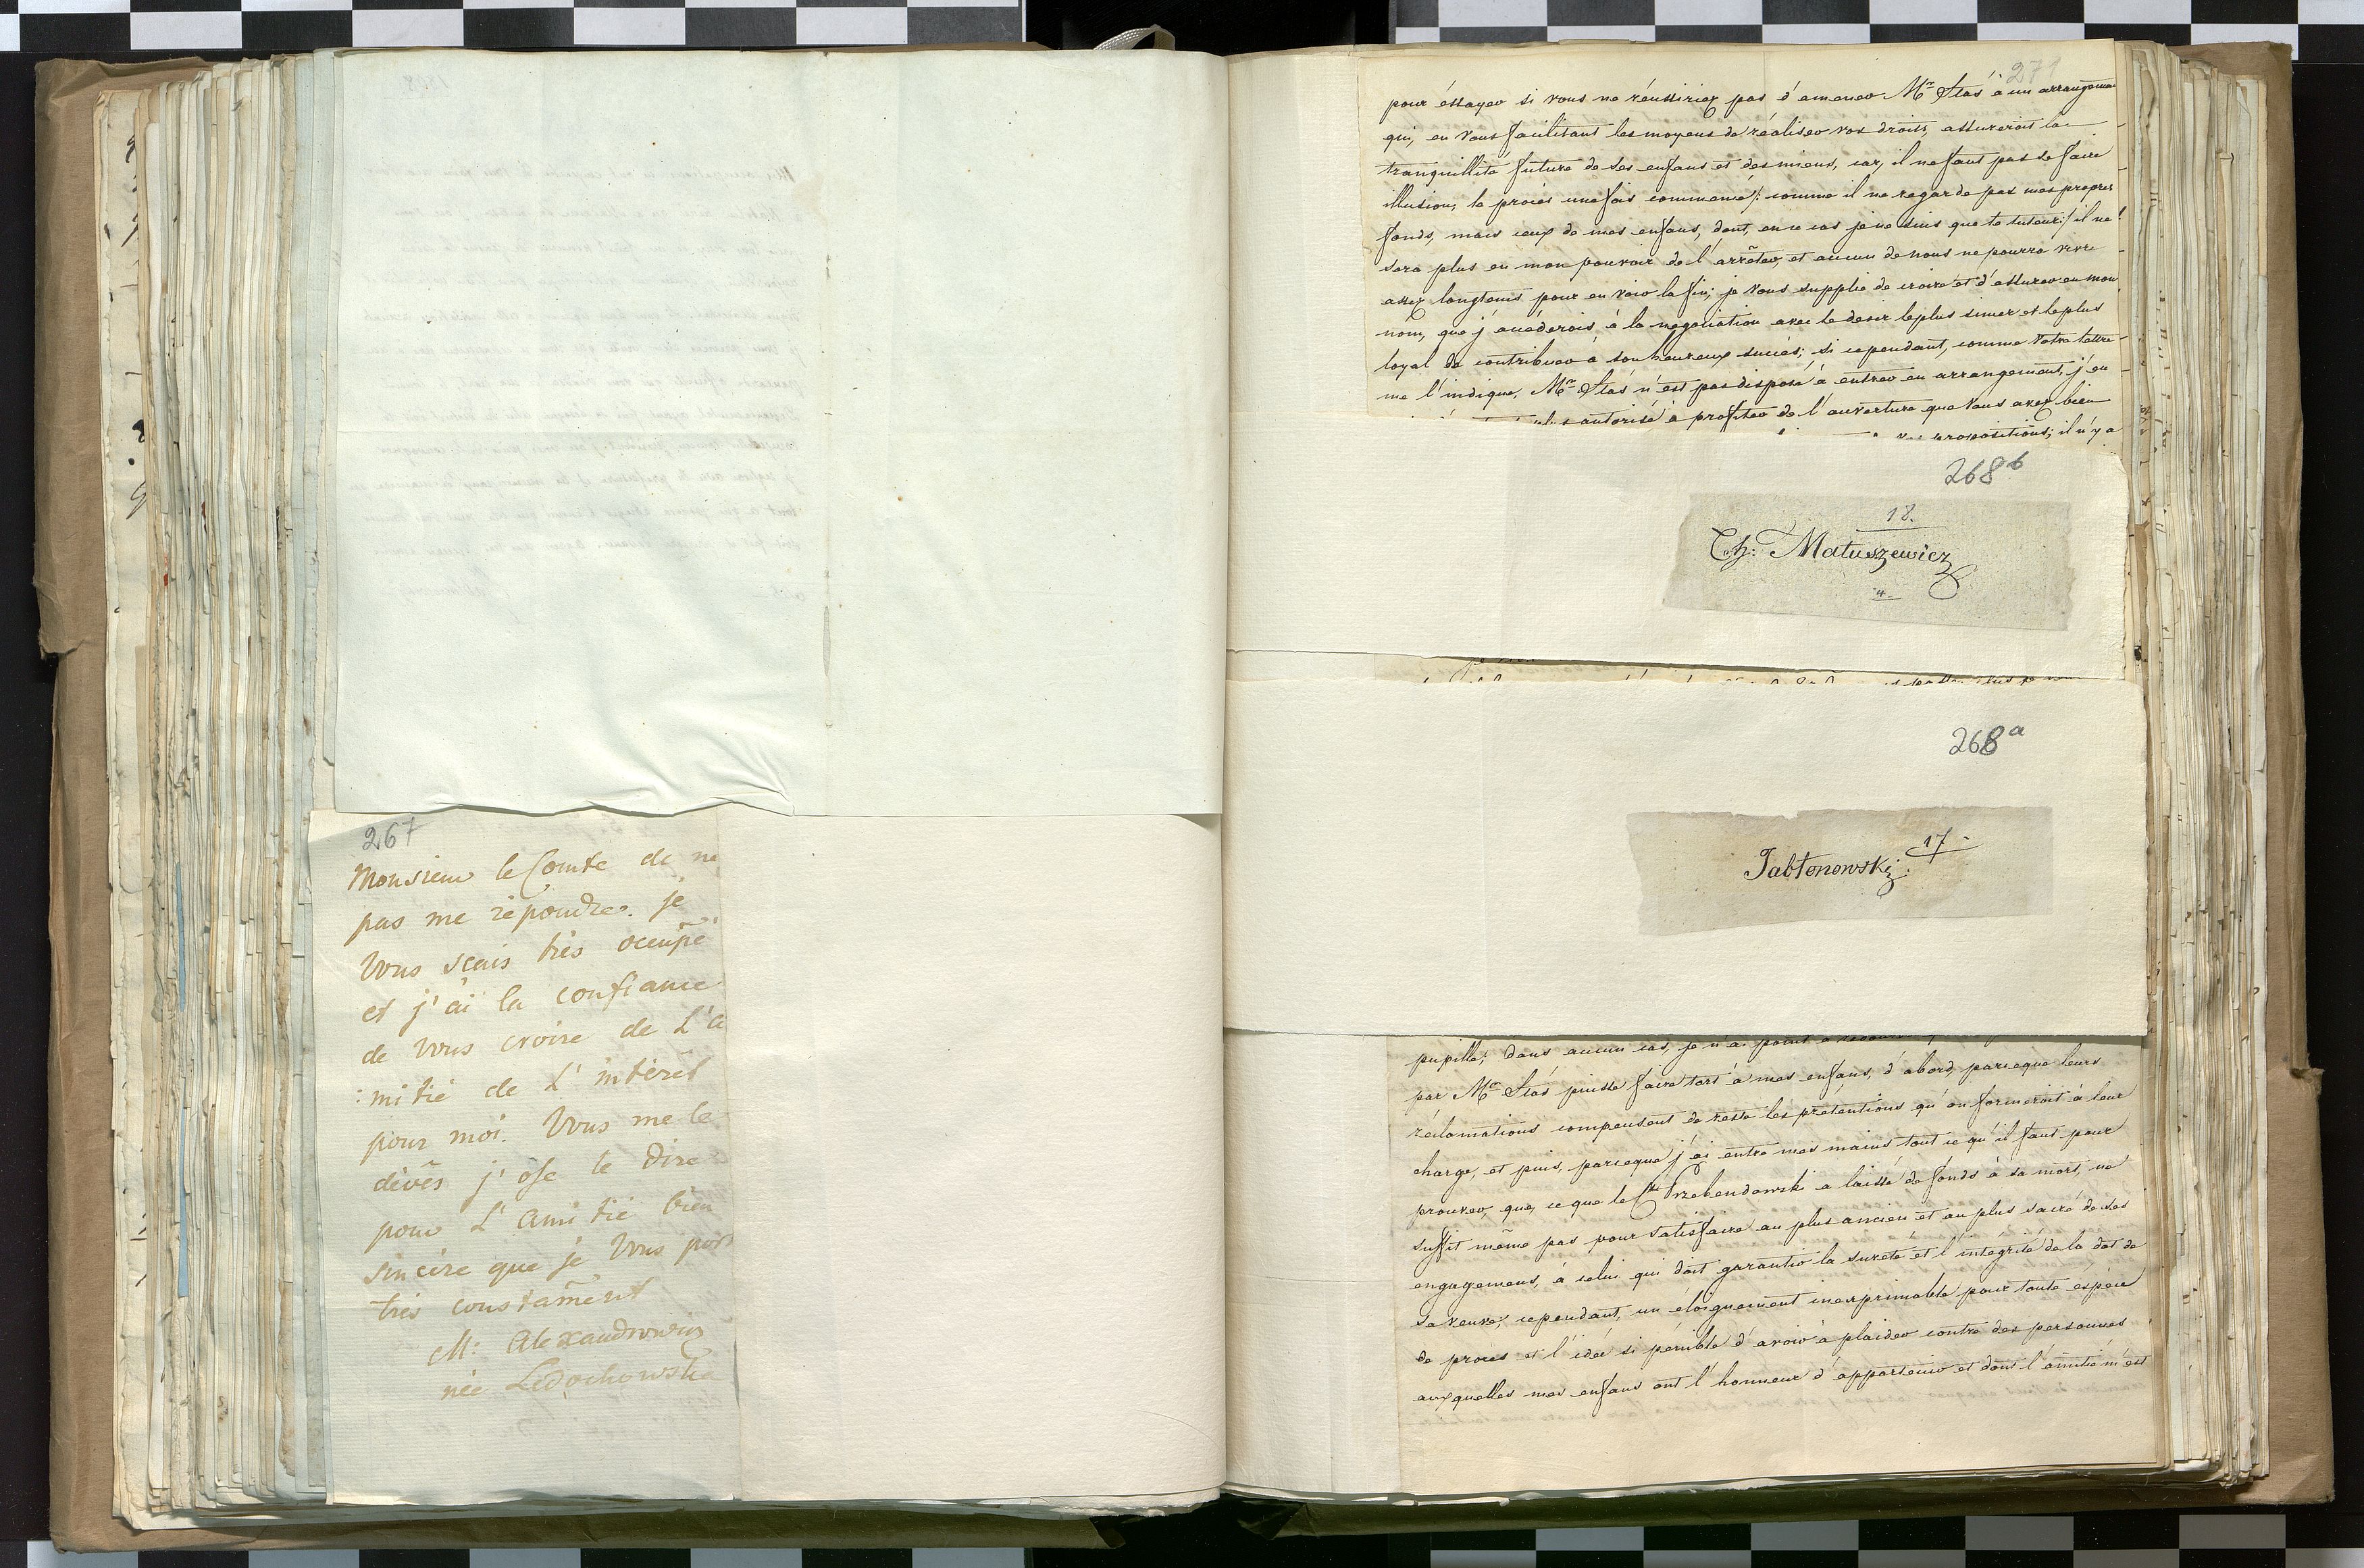 267
Monsieur le Comte de ne
pas me répondre. je
Vous scais très occupé
et j'ai la confiance
de Vous croire de L'a
:mitié de L'intérêt
pour moi. Vous me le
devés j'ose le dire
pour L'amitié bien
sincère que je Vous por
très constament
M: Alexandrowicz
née Ledochowska
271
pour éssayer si vous ne réussiriez pas d'amener Mr Stás à un arrangemen
qui, en Vous facilitant les moyens de réaliser vos droits, assureroit la
tranquillité future de ses enfans et des miens, car, il ne faut pas se faire
illusion, le procès une fois commencé /: comme il ne regarde pas mes propres
fonds, mais ceux de mes enfans, dont, en ce cas je ne suis que le tuteur :/ il ne
sera plus en mon pouvoir de l'arrêter, et aucun de nous ne pourra vivre
assez longtems pour en voir la fin; je Vous supplie de croire et d'assurer en mon
nom, que j'accéderois à la négociation avec le desir le plus sincer et le plus
loyal de contribuer à son heureux succès; si cependant, comme Votre lettre
me l'indique, Mr Stás n'est pas disposé à entrer en arrangement, j'en
autorisé à profiter de l'ouverture que Vous avez bien
propositions; il n'y a
268b
18.
Th: Matuszewicz
4.
268a
17
Jabłonowski.
pupille; dans aucun cas, je n'ai point à
par Mr Stás puisse faire tort à mes enfans, d'abord, parceque leurs
réclamations compensent de reste les prétentions qu'on formeroit à leur
charge, et puis, parceque j'ai entre mes mains tout ce qu'il faut pour
prouver, que, ce que le Cte Przebendowski a laissé de fonds à sa mort, ne
suffit même pas pour satisfaire au plus ancien et au plus sacré de ses
engagemens, à celui qui doit garantir la sureté et l'intégrité de la dot de
sa veuve; cependant, un éloignement inexprimable pour toute éspèce
de procès et l'idée si pénible d'avoir à plaider contre des personnes
auxquelles mes enfans ont l'honneur d'appartenir et dont l'amitié m'est